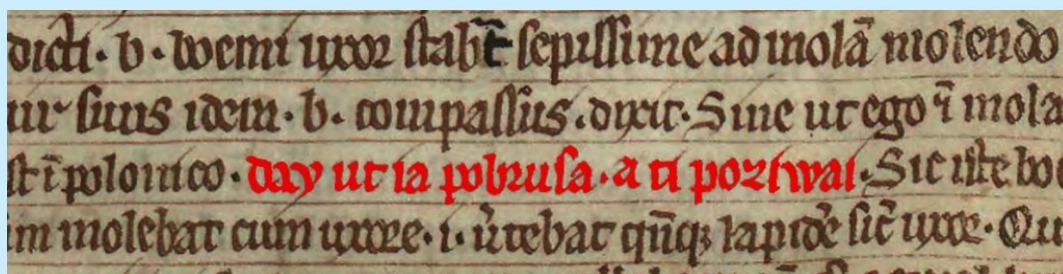 dicti · b · woemi uxor stab̄t sepissime ad molā molendo
uir suus idem · b · compassus · dixit · Sine ut ego ī mola
st ī polonico · day ut ia pobrusa · a ti poziwai · Sic iste bo
im molebat cum uxore · i · u̓tebat qn̄q; lapidē sic̄ uxor · Qu